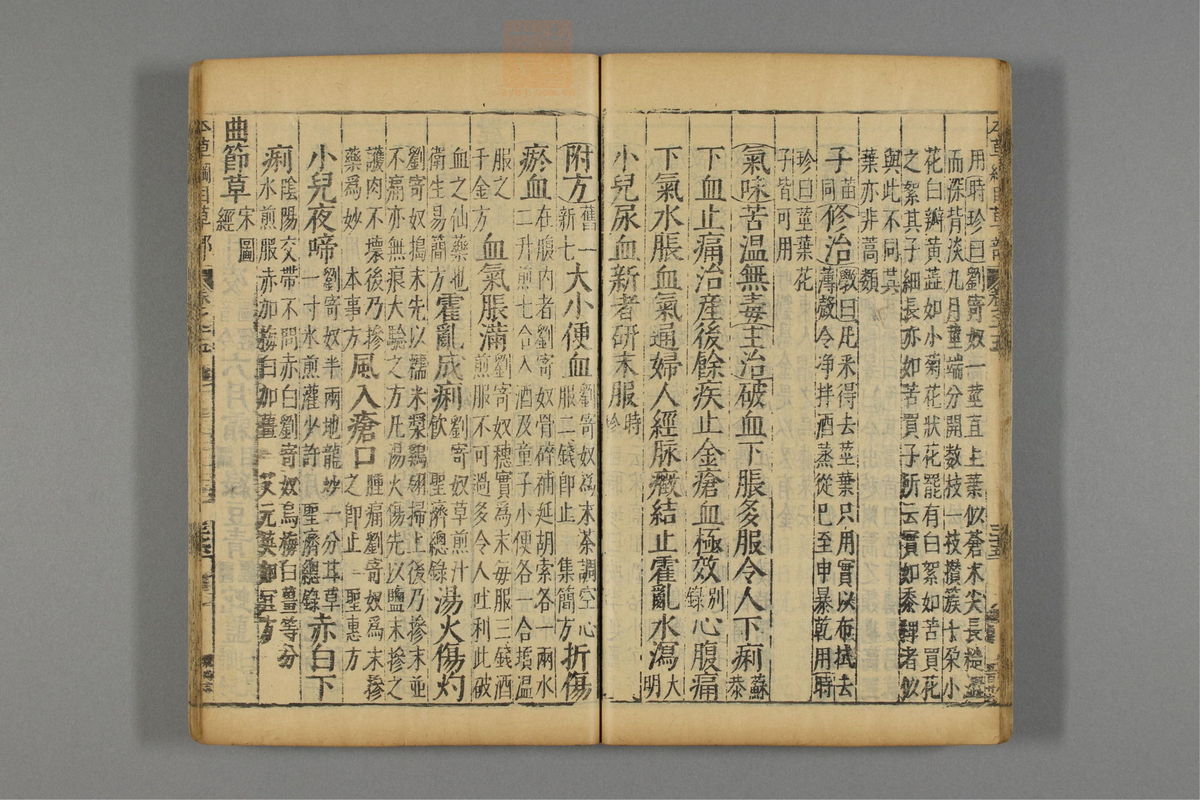 用時珍曰劉寄奴一莖直上葉似蒼朮尖長糙澀
而深背淡九月莖端分開數枝一枝攢簇十朵小
花白瓣黃蕊如小菊花狀花罷有白絮如苦買花
之絮其子細長亦如苦買子所云實如黍稗者似
與此不同其
葉亦非蒿類
子苗同修治斅曰凡采得去莖葉只用實以布拭去
薄殼令淨拌酒蒸從巳至申暴乾用時
珍曰莖葉花
子皆可用
氣味苦溫無毒主治破血下脹多服令人下痢蘇恭
下血止痛治產後餘疾止金瘡血極效別錄心腹痛
下氣水脹血氣通婦人經脉癥結止霍亂水瀉大明
小兒尿血新者研末服時珍
附方舊一新七大小便血劉寄奴爲末茶調空心服二錢即止 集簡方折傷
瘀血在腹內者劉寄奴骨碎補延胡索各一兩水二升煎七合入酒及童子小便各一合頓溫
服之千金方血氣脹滿劉寄奴穗實爲末每服三錢酒煎服不可過多令人吐利此破
血之仙藥也衛生易簡方霍亂成痢劉寄奴草煎汁飲 聖濟總錄湯火傷灼
劉寄奴搗末先以糯米漿雞翎掃上後乃摻末並
不痛亦無痕大驗之方凡湯火傷先以鹽末摻之
護肉不壞後乃摻
藥爲妙 本事方風入瘡口腫痛劉寄奴爲末摻之即止 聖惠方
小兒夜啼劉寄奴半兩地龍炒一分甘草一寸水煎灌少許 聖濟總錄赤白下
痢陰陽交帶不問赤白劉寄奴烏梅白薑等分
水煎服赤加梅白加薑 艾元英如宜方
曲節草宋圖經